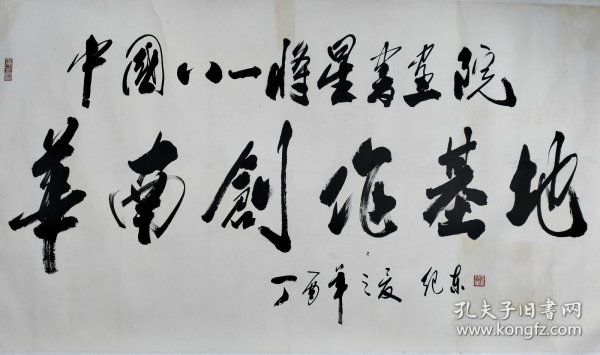 中國八一將星書畫院
華南創作基地
丁酉年之夏 纪东
孔夫子旧书网
www.kongfz.com